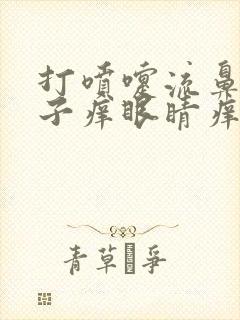 打噴嚏流鼻
子痒眼睛痒
青草爭